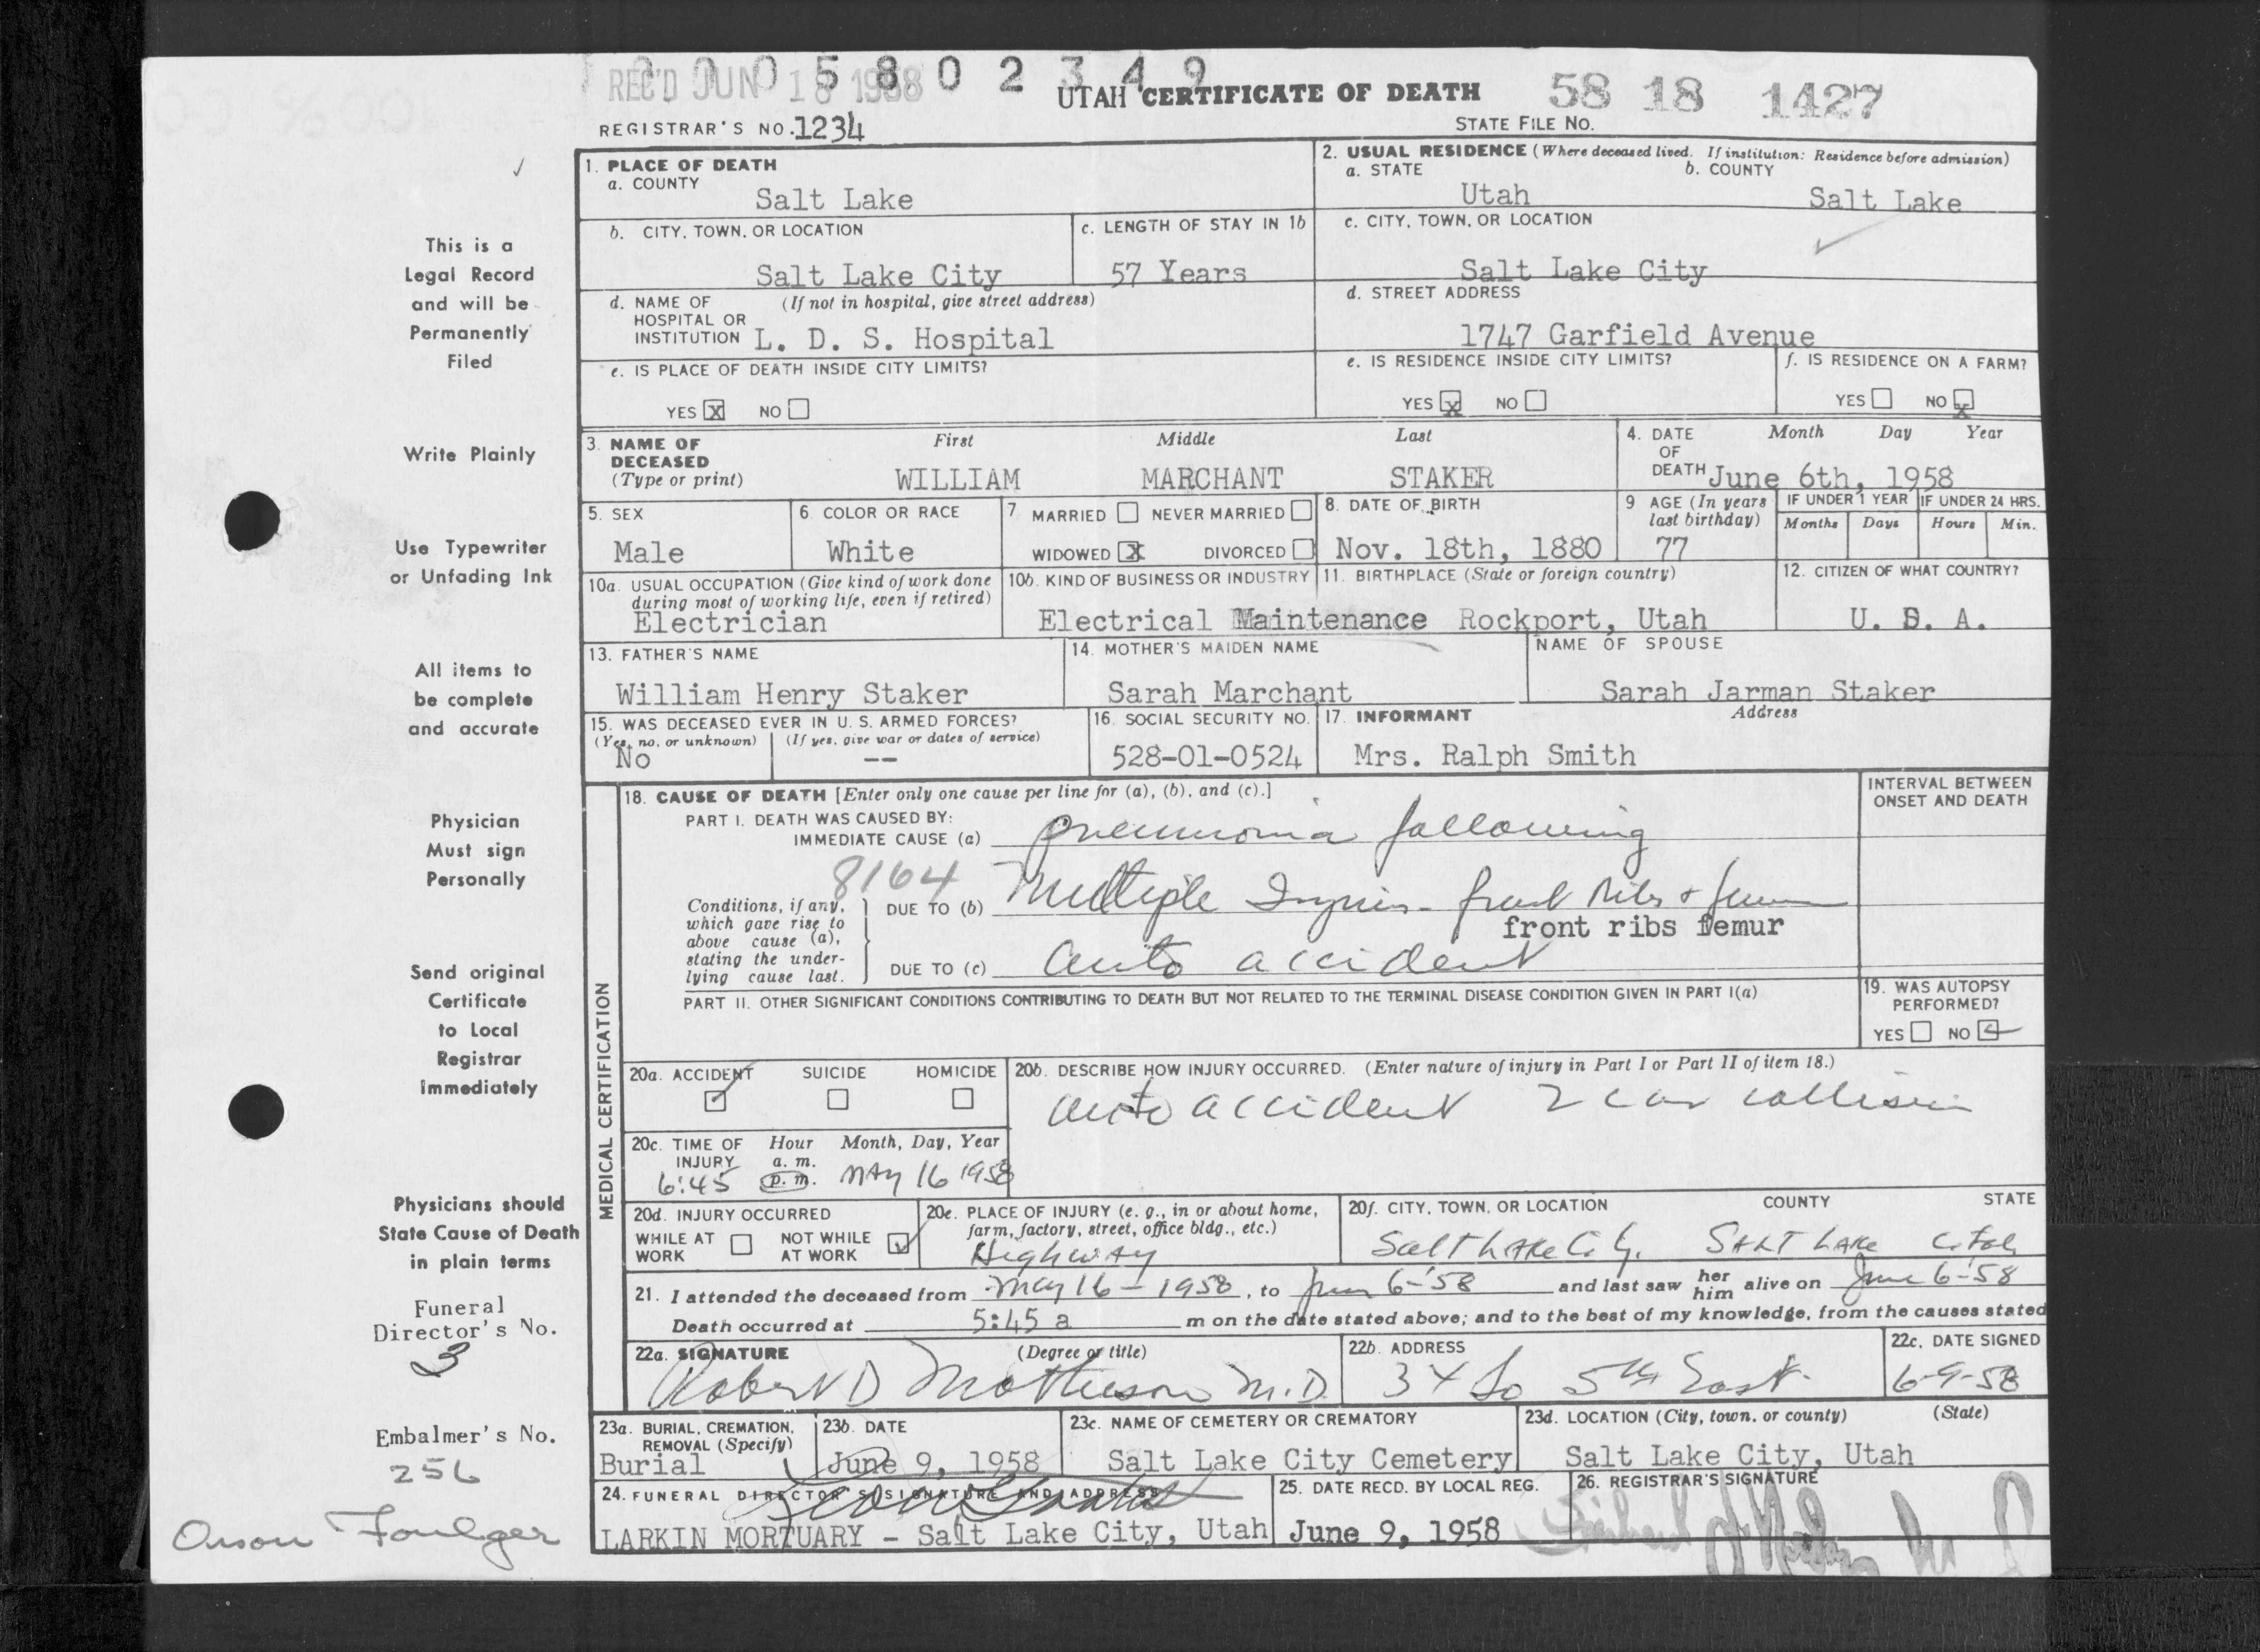 2 0 0 5 8 0 2 3 4 9
REC'D JUN 18 1958
UTAH CERTIFICATE OF DEATH 58 18 1427
REGISTRAR'S NO. 1234 STATE FILE NO.
1. PLACE OF DEATH
a. COUNTY
Salt Lake
2. USUAL RESIDENCE (Where deceased lived. If institution: Residence before admission)
a. STATE b. COUNTY
Utah Salt Lake
b. CITY, TOWN, OR LOCATION
Salt Lake City
c. LENGTH OF STAY IN 1b
57 Years
c. CITY, TOWN, OR LOCATION
Salt Lake City
d. NAME OF (If not in hospital, give street address)
HOSPITAL OR
INSTITUTION L. D. S. Hospital
d. STREET ADDRESS
1747 Garfield Avenue
e. IS PLACE OF DEATH INSIDE CITY LIMITS?
YES X NO
e. IS RESIDENCE INSIDE CITY LIMITS?
YES X NO
f. IS RESIDENCE ON A FARM?
YES NO X
3. NAME OF DECEASED (Type or print)
First Middle Last
WILLIAM MARCHANT STAKER
4. DATE OF DEATH Month Day Year
June 6th, 1958
5. SEX
Male
6. COLOR OR RACE
White
7. MARRIED NEVER MARRIED
WIDOWED X DIVORCED
8. DATE OF BIRTH
Nov. 18th, 1880
9 AGE (In years last birthday)
77
IF UNDER 1 YEAR IF UNDER 24 HRS.
Months Days Hours Min.
10a. USUAL OCCUPATION (Give kind of work done
during most of working life, even if retired)
Electrician
10b. KIND OF BUSINESS OR INDUSTRY
Electrical Maintenance
11. BIRTHPLACE (State or foreign country)
Rockport, Utah
12. CITIZEN OF WHAT COUNTRY?
U. S. A.
13. FATHER'S NAME
William Henry Staker
14. MOTHER'S MAIDEN NAME
Sarah Marchant
NAME OF SPOUSE
Sarah Jarman Staker
15. WAS DECEASED EVER IN U. S. ARMED FORCES?
(Yes, no, or unknown) (If yes, give war or dates of service)
No --
16. SOCIAL SECURITY NO.
528-01-0524
17. INFORMANT Address
Mrs. Ralph Smith
MEDICAL CERTIFICATION
18. CAUSE OF DEATH [Enter only one cause per line for (a), (b), and (c).]
INTERVAL BETWEEN
ONSET AND DEATH
PART I. DEATH WAS CAUSED BY:
IMMEDIATE CAUSE (a) pneumonia following
8164
Conditions, if any,
which gave rise to
above cause (a),
stating the under-
lying cause last.
DUE TO (b) Multiple Injuries - front ribs & femur
front ribs femur
DUE TO (c) auto accident
PART II. OTHER SIGNIFICANT CONDITIONS CONTRIBUTING TO DEATH BUT NOT RELATED TO THE TERMINAL DISEASE CONDITION GIVEN IN PART I(a)
19. WAS AUTOPSY
PERFORMED?
YES NO
20a. ACCIDENT SUICIDE HOMICIDE
20b. DESCRIBE HOW INJURY OCCURRED. (Enter nature of injury in Part I or Part II of item 18.)
auto accident 2 car collision
20c. TIME OF INJURY Hour Month, Day, Year
a. m.
6:45 p. m. MAY 16 1958
20d. INJURY OCCURRED
WHILE AT WORK NOT WHILE AT WORK
20e. PLACE OF INJURY (e. g., in or about home,
farm, factory, street, office bldg., etc.)
Highway
20f. CITY, TOWN, OR LOCATION COUNTY STATE
Salt Lake City. SALT LAKE Utah
21. I attended the deceased from May 16 - 1958, to June 6-'58 and last saw her him alive on June 6-'58
Death occurred at 5:45 a m on the date stated above; and to the best of my knowledge, from the causes stated
22a. SIGNATURE (Degree or title)
Robert D Mathieson M.D.
22b. ADDRESS
34 So 5th East.
22c. DATE SIGNED
6-9-58
23a. BURIAL, CREMATION,
REMOVAL (Specify)
Burial
23b. DATE
June 9, 1958
23c. NAME OF CEMETERY OR CREMATORY
Salt Lake City Cemetery
23d. LOCATION (City, town, or county) (State)
Salt Lake City, Utah
24. FUNERAL DIRECTOR'S SIGNATURE AND ADDRESS
LARKIN MORTUARY - Salt Lake City, Utah
25. DATE RECD. BY LOCAL REG.
June 9, 1958
26. REGISTRAR'S SIGNATURE
This is a
Legal Record
and will be
Permanently
Filed
Write Plainly
Use Typewriter
or Unfading Ink
All items to
be complete
and accurate
Physician
Must sign
Personally
Send original
Certificate
to Local
Registrar
immediately
Physicians should
State Cause of Death
in plain terms
Funeral
Director's No.
3
Embalmer's No.
256
Orson Foulger